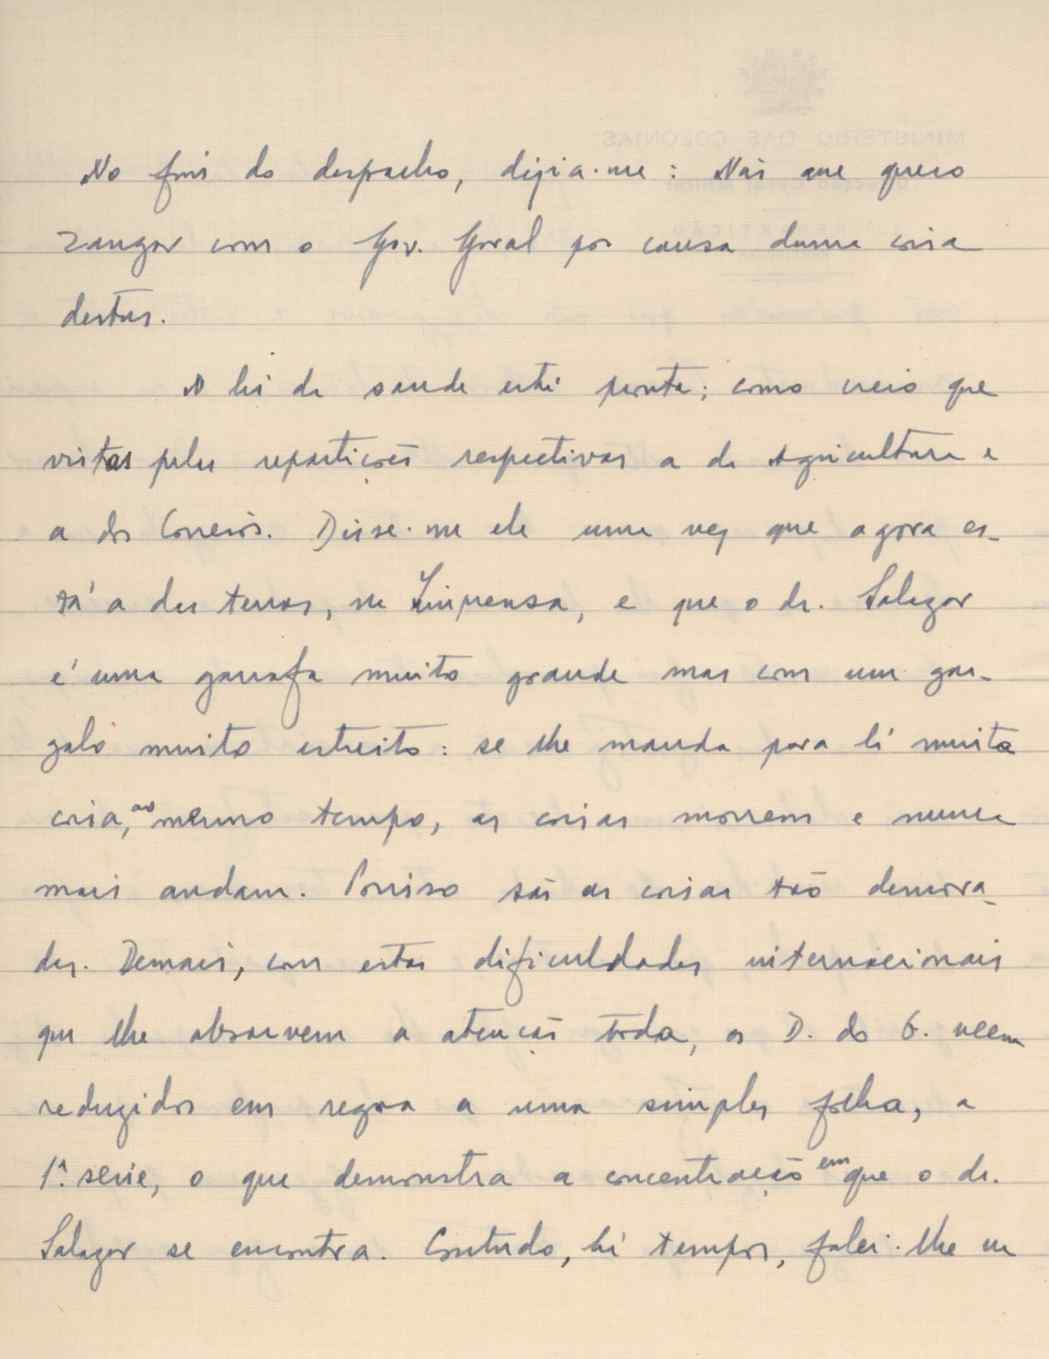 No fim do despacho, dizia-me: Não me quero
zangar com o Gov. Geral por causa duma coisa
destas.
A lei de saude está pronta; como creio que
vistas pelas repartições respectivas a da Agricultura e
a dos Correios. Disse-me ele uma vez que agora es-
tá a das terras, na Imprensa, e que o dr. Salazar
é uma garrafa muito grande mas com um gar-
galo muito estreito: se lhe manda para lá muita
coisa, ao mesmo tempo, as coisas morrem e nunca
mais andam. Porisso são as coisas tão demora-
das. Demais, com estas dificuldades internacionais
que lhe absorvem a atenção toda, os D. do G. veem
reduzidos em regra a uma simples folha, a
1ª. serie, o que demonstra a concentração em que o dr.
Salazar se encontra. Contudo, há tempos, falei-lhe na
MINISTÉRIO DAS COLONIAS